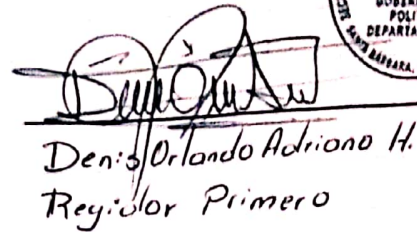 POLI
DEPARTA
SANTA BARBARA,
Denis Orlando Adriano H.
Regidor Primero